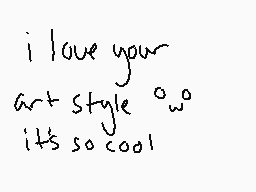 i love your
art style owo
it's so cool